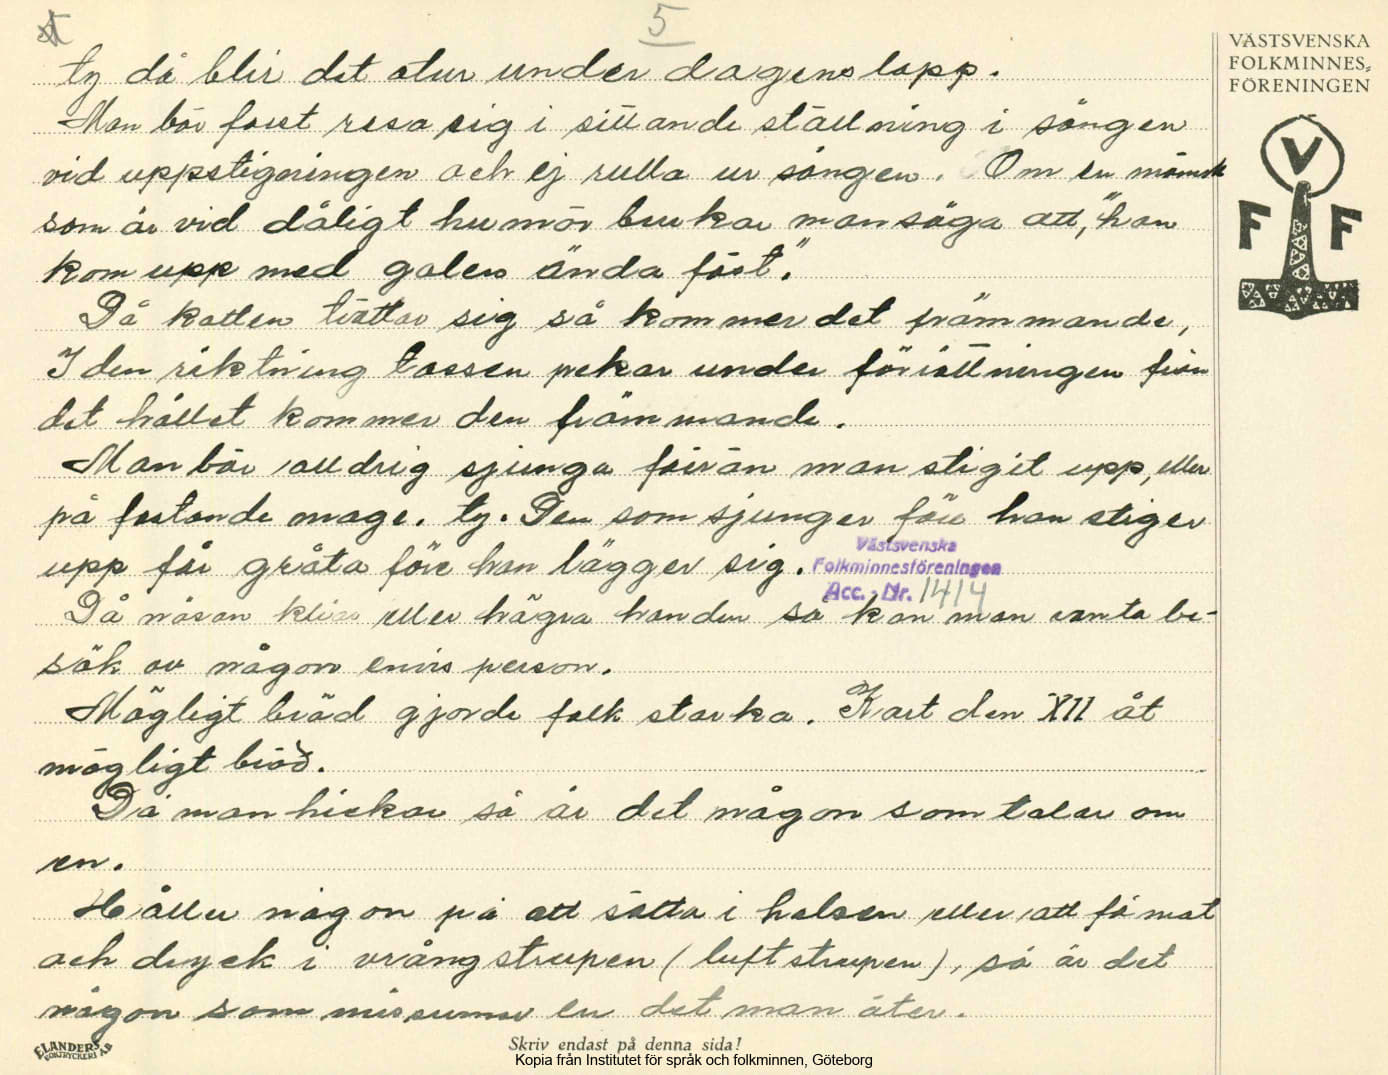 5
VÄSTSVENSKA
FOLKMINNES-
FÖRENINGEN
V
F F
ty då blir det otur under dagens lopp.
Man bör först resa sig i sittande ställning i sängen
vid uppstigningen och ej rulla ur sängen. Om en mänsk
som är vid dåligt humör brukar man säga att, "han
kom upp med galen ända föst".
Då katten tvättar sig så kommer det främmande,
I den riktning tassen pekar under förrättningen från
det hållet kommer den främmande.
Man bör alldrig sjunga förrän man stigit upp, eller
på fastande mage. ty. Den som sjunger före han stiger
upp får gråta före han lägger sig.
Västsvenska
Folkminnesföreningen
Acc. - Nr. 1414
Då näsan kliar eller högra handen så kan man vänta be-
sök av någon envis person.
Mögligt bröd gjorde folk starka. Karl den XII åt
mögligt bröd.
Då man hickar så är det någon som talar om
en.
Håller någon på att sätta i halsen eller att få mat
och dryck i vrångstrupen (luftstrupen), så är det
någon som missunnar en det man äter.
ELANDERS
BOKTRYCKERI A.B.
Skriv endast på denna sida!
Kopia från Institutet för språk och folkminnen, Göteborg